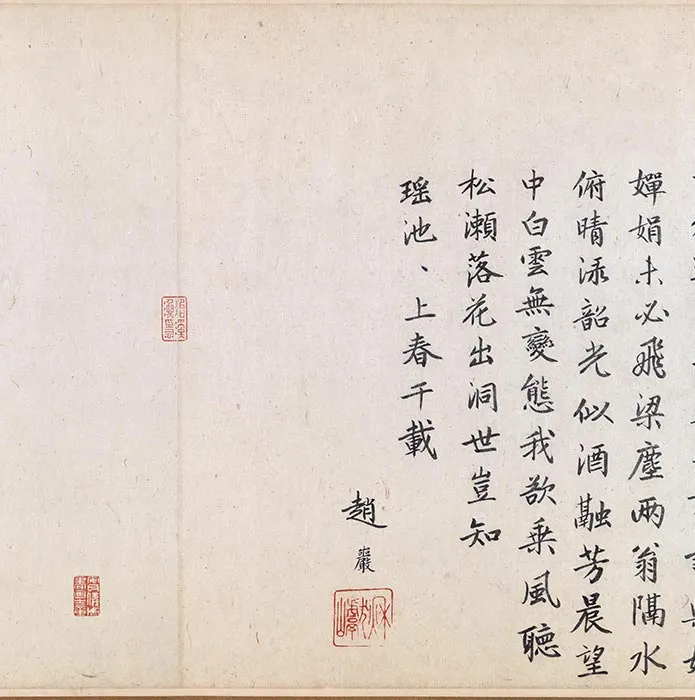 嬋娟未必飛梁塵兩翁隔水
俯晴渌韶光似酒融芳晨望
中白雲無變態我欲乘風聽
松瀨落花出洞世豈知
瑶池、上春千載
趙巖